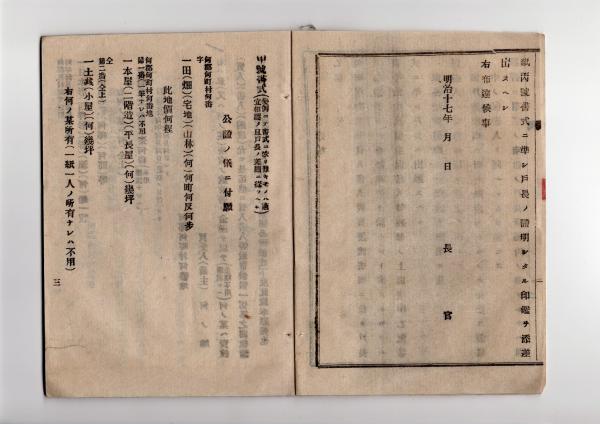 紙丙號書式ニ準シ戸長ノ證明シタル印鑑ヲ添差
出スヘシ
右布達候事
明治十七年 月 日 長官
二
甲號書式
公證ノ儀ニ付願
字
何郡何町村何番
一田(畑)(宅地)(山林)(何)何町何反何歩
此地價何程
何郡何町村何番地
第一號(一筆ナレハ不用)
一本屋(二階造)(平長屋)(何)幾坪
仝
第二號(仝上)
一土藏(小屋)(何)幾坪
右何ノ某所有(一紙一人ノ所有ナレハ不用)
三